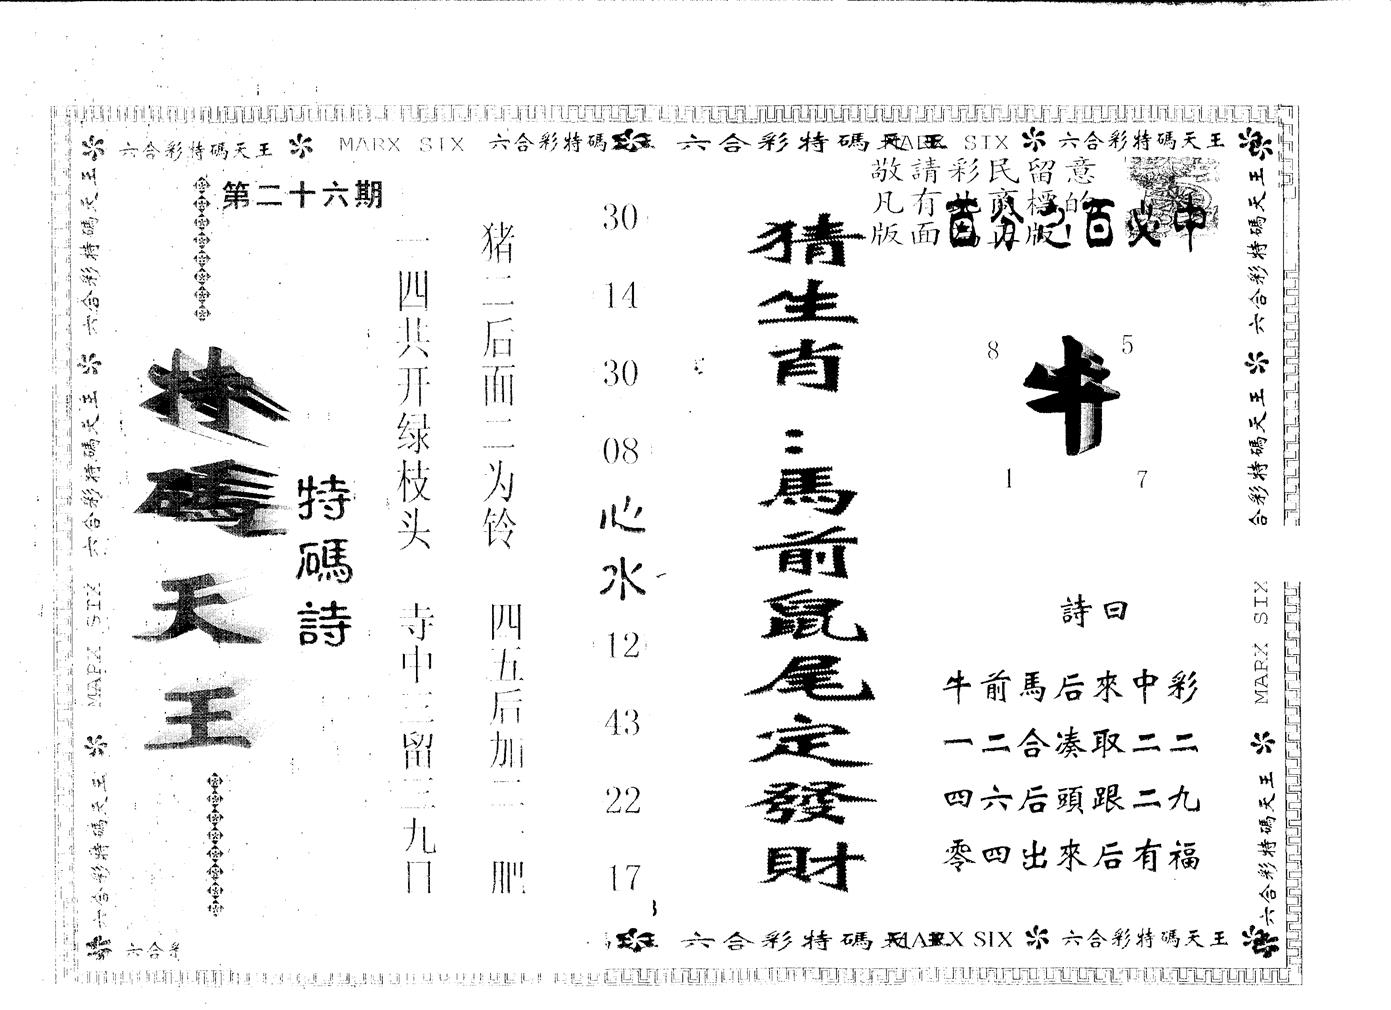 六合彩特碼天王 MARX SIX 六合彩特碼
六合彩特碼天王 MARX SIX 六合彩特碼天王
敬請彩民留意
凡有
版面
第二十六期
特碼天王
特碼詩
一四共开绿枝头 寺中三留三九口
猪二后面二为铃 四五后加二
30
14
30
08
心水
12
43
22
17
猜生肖:馬前鼠尾定發財
百分之百必中
8
5
牛
1
7
詩曰
牛前馬后來中彩
一二合凑取二二
四六后頭跟二九
零四出來后有福
六合彩特碼天王
六合彩特碼天王
六合彩特碼天王
MARX SIX
六合彩特碼天王
六合彩特碼天王
合彩特碼天王
MARX SIX
六合彩特碼天王
六合彩
六合彩特碼天王 MARX SIX 六合彩特碼天王